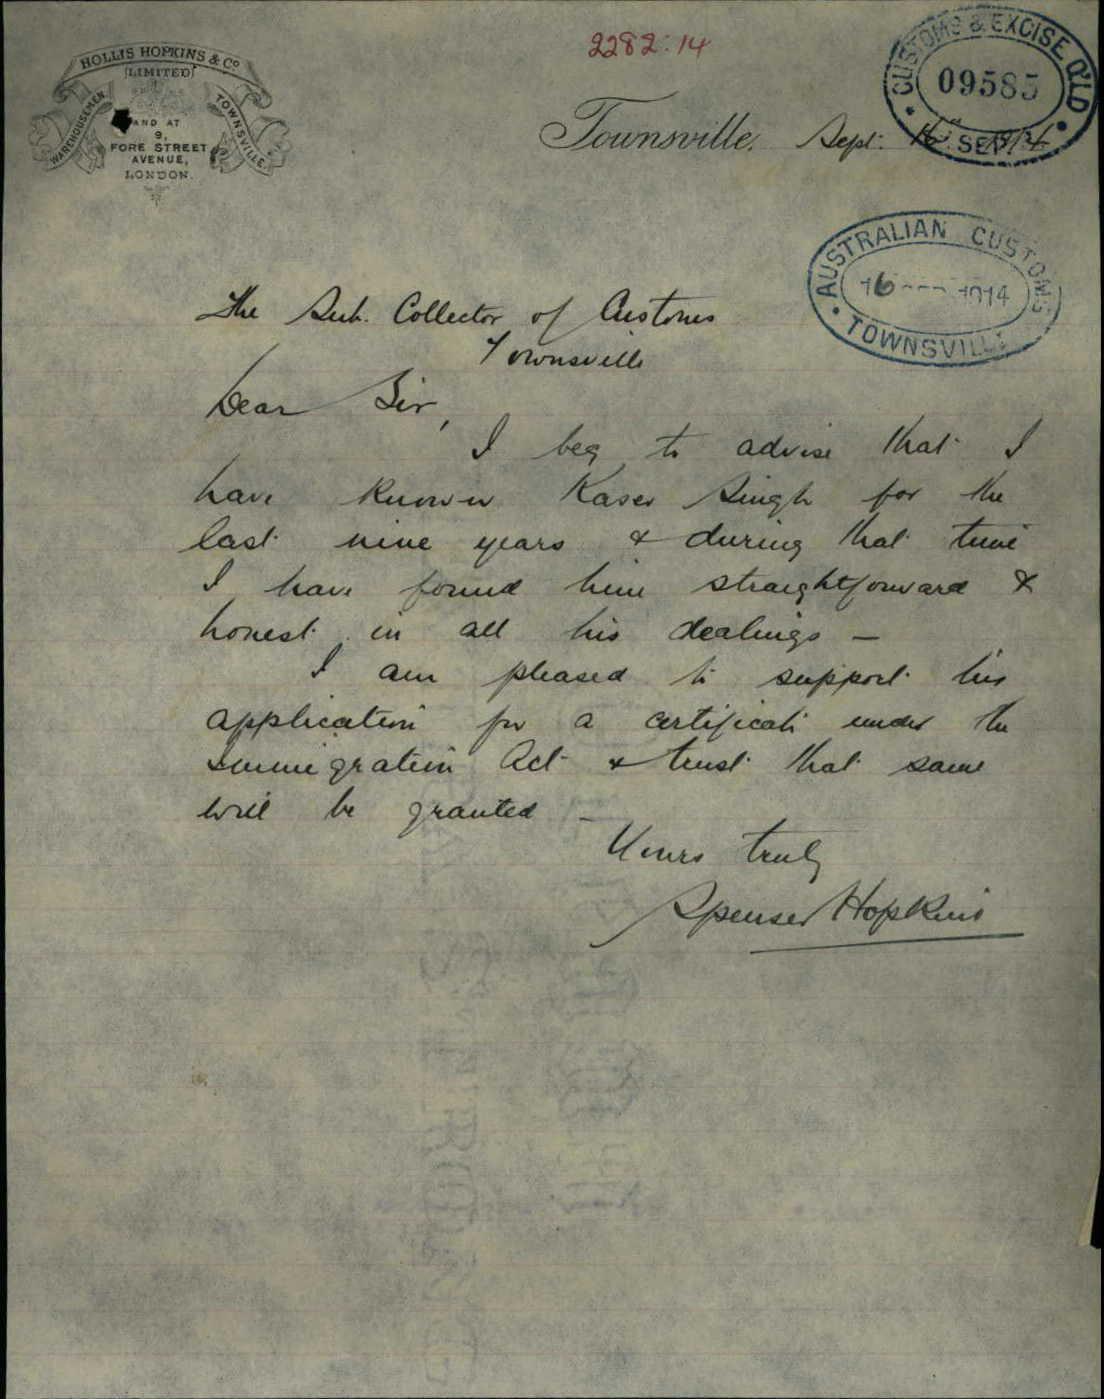 HOLLIS HOPKINS & Co
(LIMITED)
WAREHOUSEMEN
TOWNSVILLE
AND AT
9,
FORE STREET
AVENUE,
LONDON.
2282:14
CUSTOMS & EXCISE Q'LD
09585
SEP.
Townsville, Sept. 16th 1914
AUSTRALIAN CUSTOMS
16 1914
TOWNSVILLE
The Sub. Collector of Customs
Townsville
Dear Sir,
I beg to advise that I
have known Kaser Singh for the
last nine years & during that time
I have found him straightforward &
honest in all his dealings —
I am pleased to support his
application for a certificate under the
Immigration Act & trust that same
will be granted —
Yours truly
Spenser Hopkins